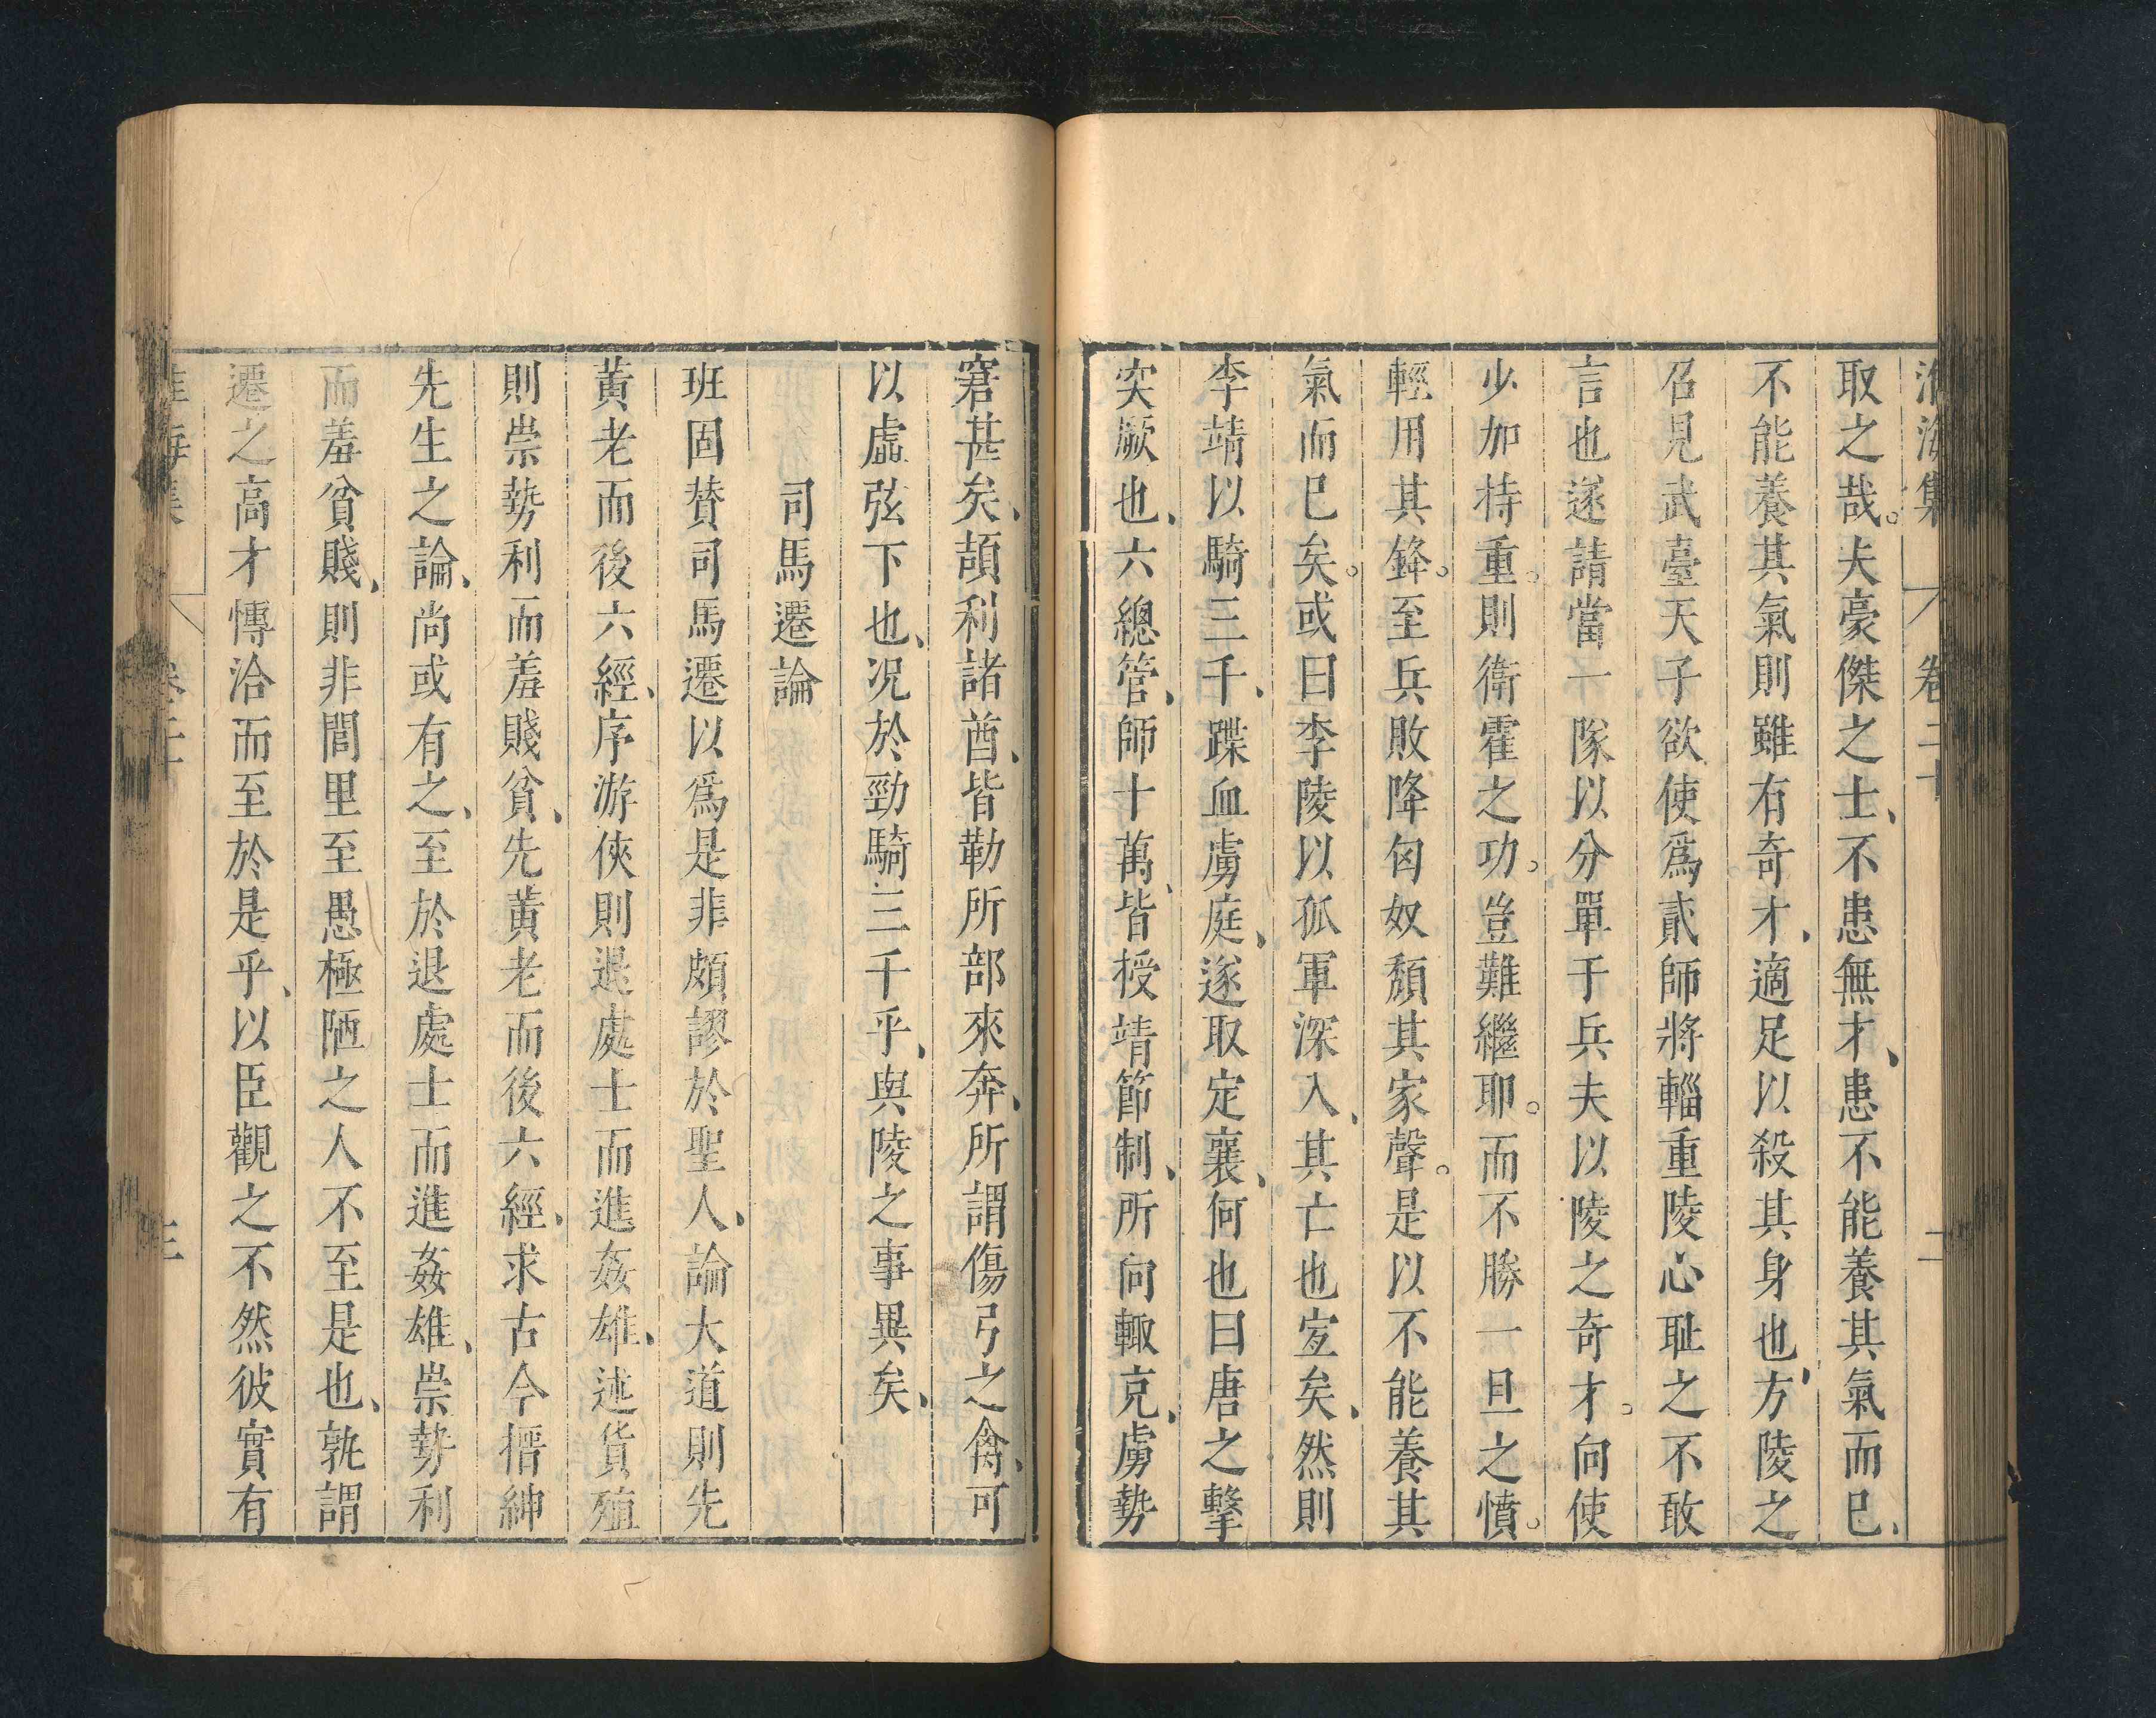 淮海集 卷二十 二
取之哉。夫豪傑之士、不患無才、患不能養其氣而已、
不能養其氣則雖有奇才、適足以殺其身也、方陵之
召見武臺天子欲使爲貳師將輜重陵心耻之不敢
言也遂請當一隊以分單于兵夫以陵之奇才。向使
少加持重。則衛霍之功。豈難繼耶。而不勝一旦之憤。
輕用其鋒。至兵敗降匈奴頹其家聲。是以不能養其
氣而已矣。或曰李陵以孤軍深入、其亡也宜矣、然則
李靖以騎三千、蹀血虜庭、遂取定襄、何也曰唐之擊
突厥也、六總管、師十萬、皆授靖節制、所向輒克、虜勢
窘甚矣、頡利諸酋、皆勒所部來奔、所謂傷弓之禽、可
以虛弦下也、况於勁騎三千乎、與陵之事異矣、
司馬遷論
班固賛司馬遷以爲是非頗謬於聖人、論大道則先
黃老而後六經、序游俠則退處士而進姦雄、述貨殖
則崇勢利而羞賤貧、先黃老而後六經、求古今搢紳
先生之論、尚或有之、至於退處士而進姦雄、崇勢利
而羞貧賤、則非閭里至愚極陋之人不至是也、孰謂
遷之高才慱洽而至於是乎、以臣觀之不然彼實有
淮海集 卷二十 三